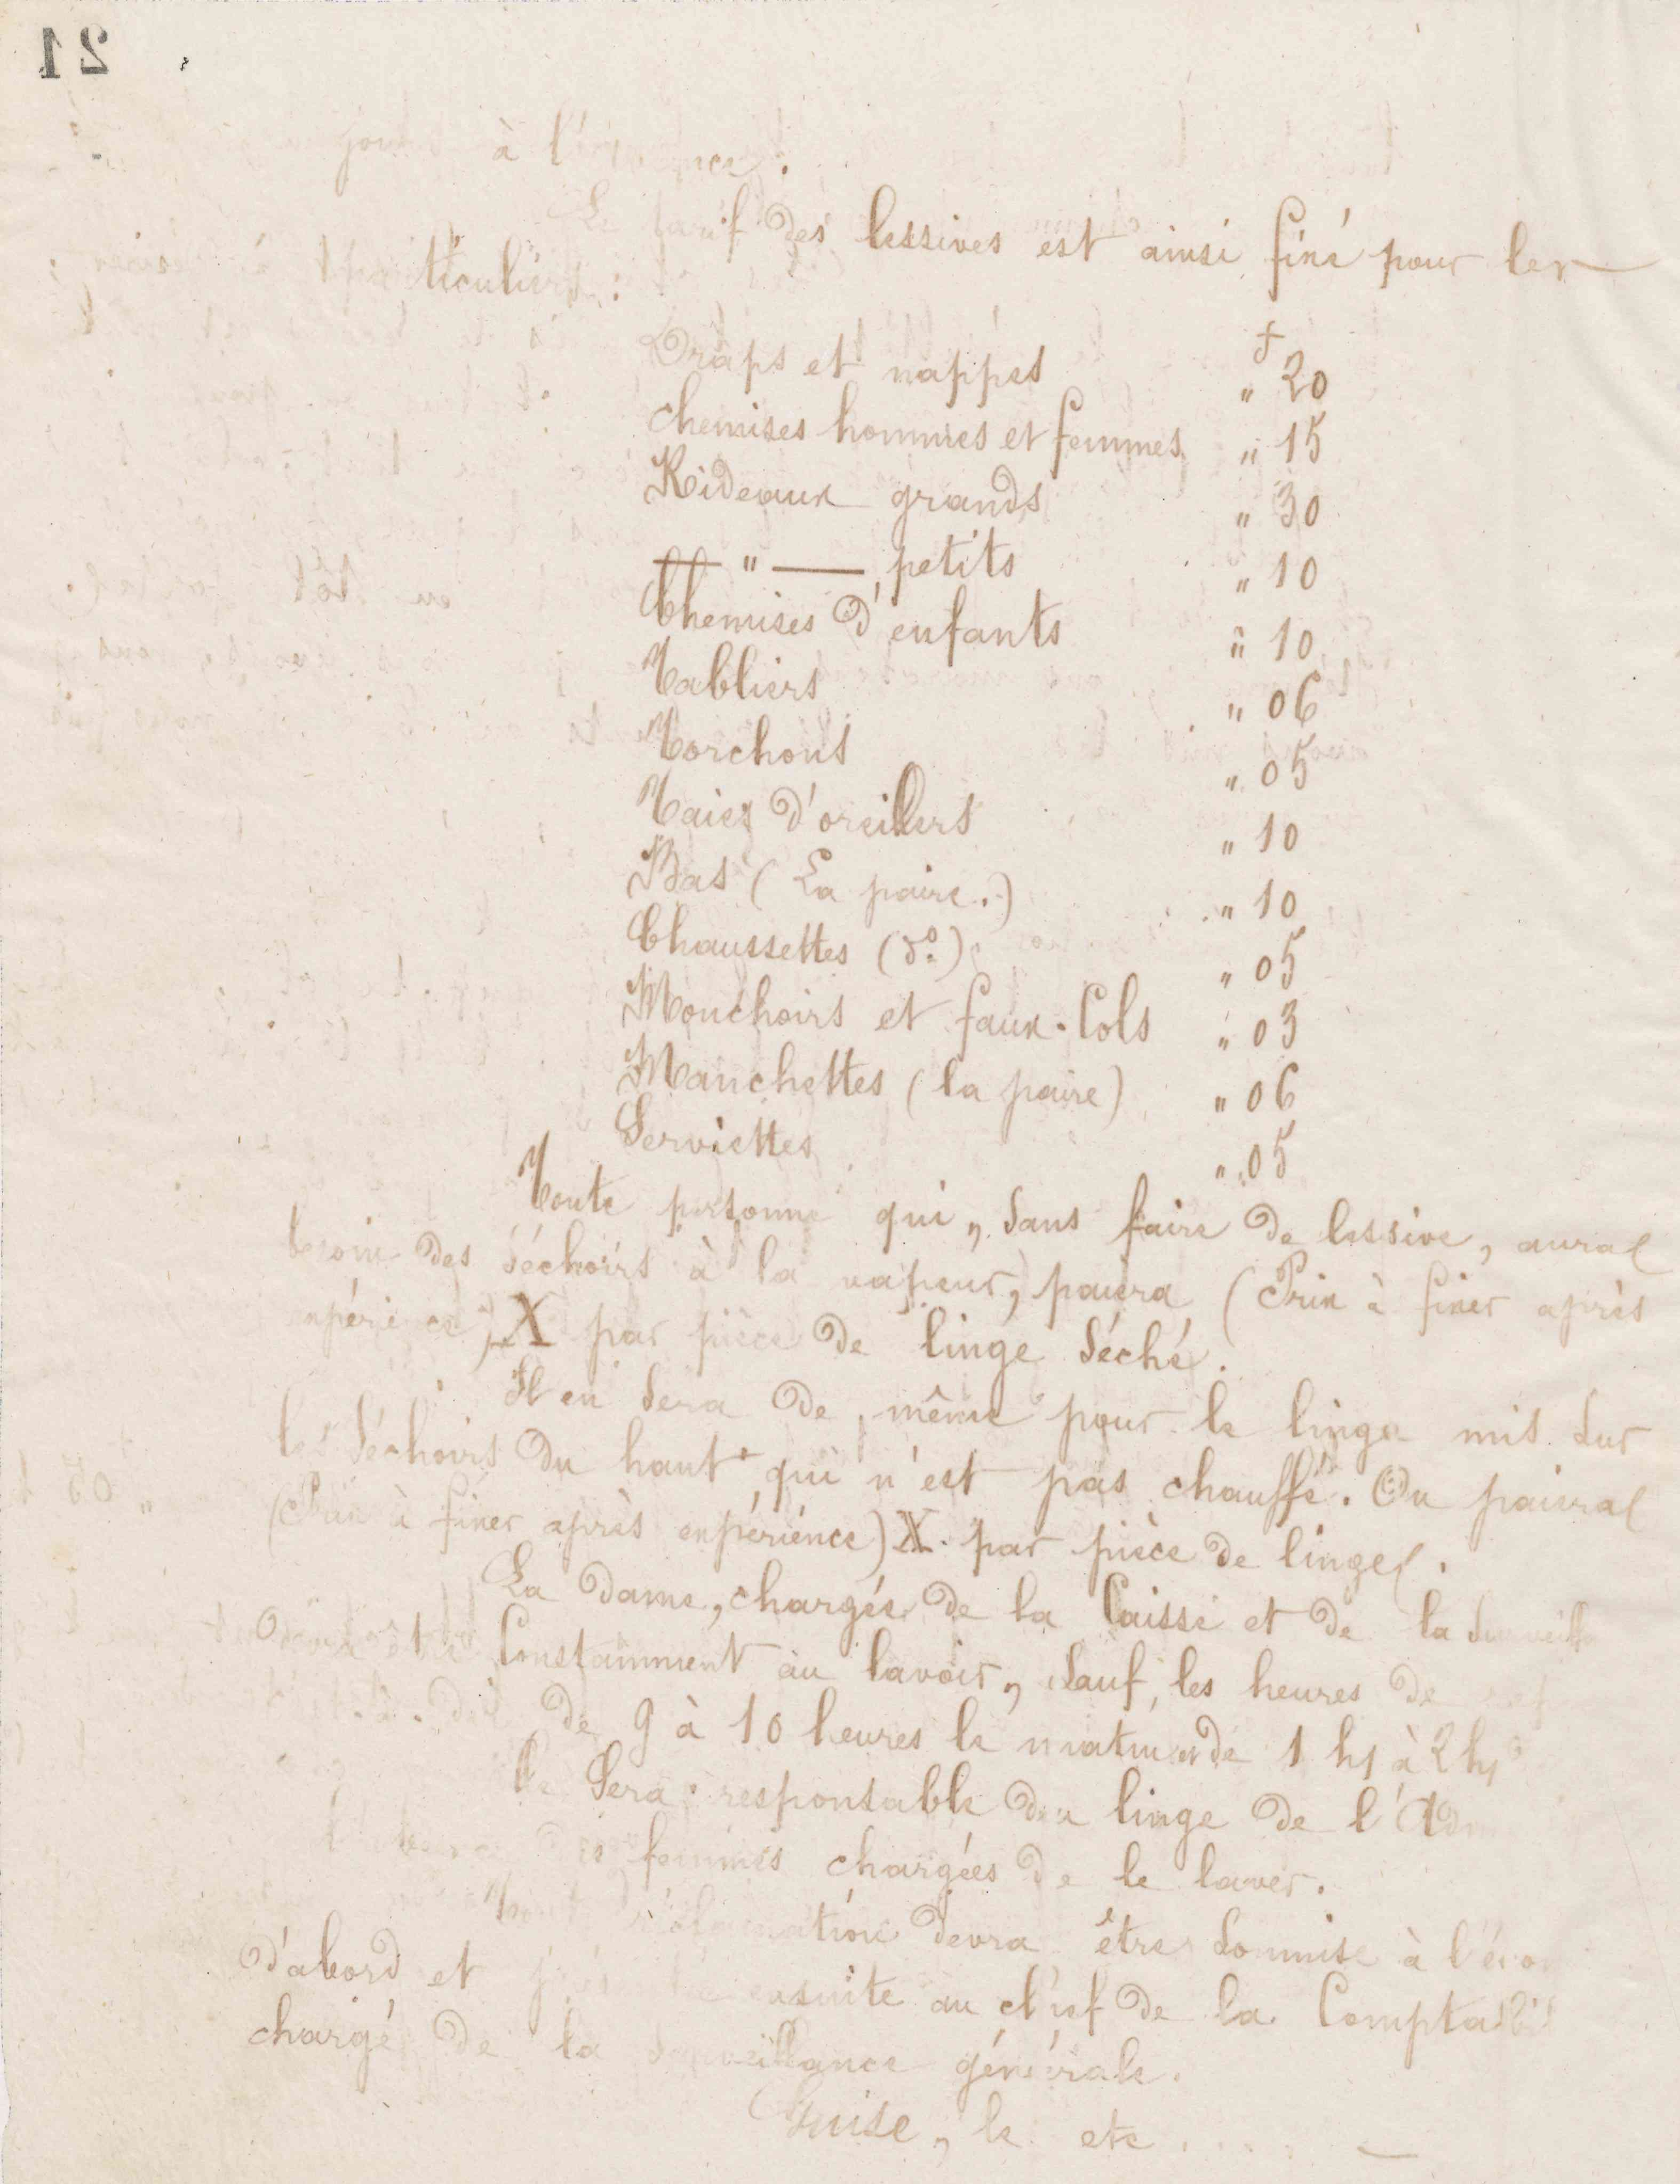 21
à l'
Le tarif des lessives est ainsi fixé pour les
particuliers :
f
Draps et nappes " 20
Chemises hommes et femmes " 15
Rideaux grands " 30
— " — petits " 10
Chemises d'enfants " 10
Tabliers " 06
Torchons " 05
Taies d'oreillers " 10
Bas (La paire.) " 10
Chaussettes (do) " 05
Mouchoirs et faux-Cols " 03
Manchettes (la paire) " 06
Serviettes " 05
Toute personne qui, sans faire de lessive, aura
besoin des séchoirs à la vapeur, paiera (Prix à fixer après
expérience) X par pièce de linge séché.
Il en sera de même pour le linge mis sur
les séchoirs du haut qui n'est pas chauffé. On paiera
(Prix à fixer après expérience) X par pièce de linge.
La dame, chargée de la Caisse et de la surveilla
devra être Constamment au lavoir, sauf, les heures de
de 9 à 10 heures le matin et de 1 hs à 2 hs
sera responsable du linge de l'Ad
des femmes chargées de le laver.
réclamation devra être soumise à l'éco
d'abord et ensuite au chef de la Comptabil
chargé de la surveillance générale.
Guise, le etc ....